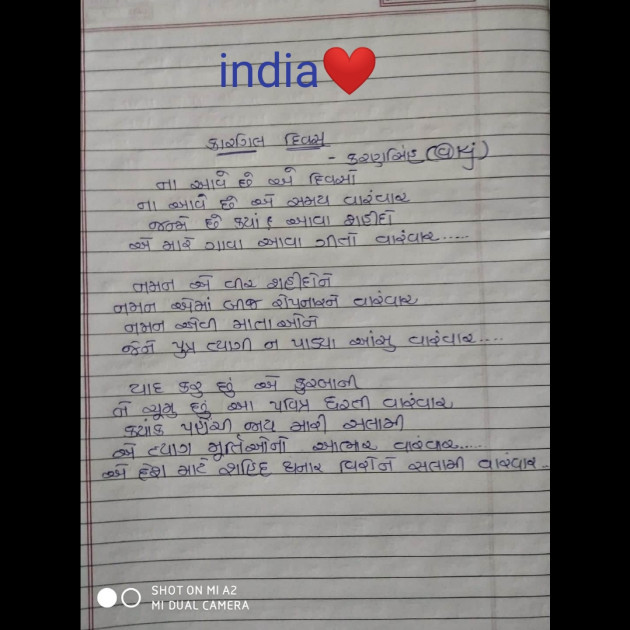 india❤
કારગિલ દિવસ
- કરણસિંહ (@kj)
ના આવે છે એ દિવસો
ના આવે છે એ સમય વારંવાર
જન્મે છે ક્યાં આવા શહીદો
એ મારે ગાવા આવા ગીતો વારંવાર.....
નમન એ વીર શહીદોને
નમન એમાં બીજ રોપનારને વારંવાર
નમન એવી માતાઓને
જેને પુત્ર ત્યાગી ન પાડ્યા આંસુ વારંવાર....
યાદ કરુ છું એ કુરબાની
ને ચૂમુ છું આ પવિત્ર ધરતી વારંવાર
ક્યાંક પહોંચી જાય મારી સલામી
એ ત્યાગ મૂર્તિઓનો આભાર વારંવાર.....
એ દેશ માટે શહિદ થનાર વિરોને સલામી વારંવાર..
SHOT ON MI A2
MI DUAL CAMERA